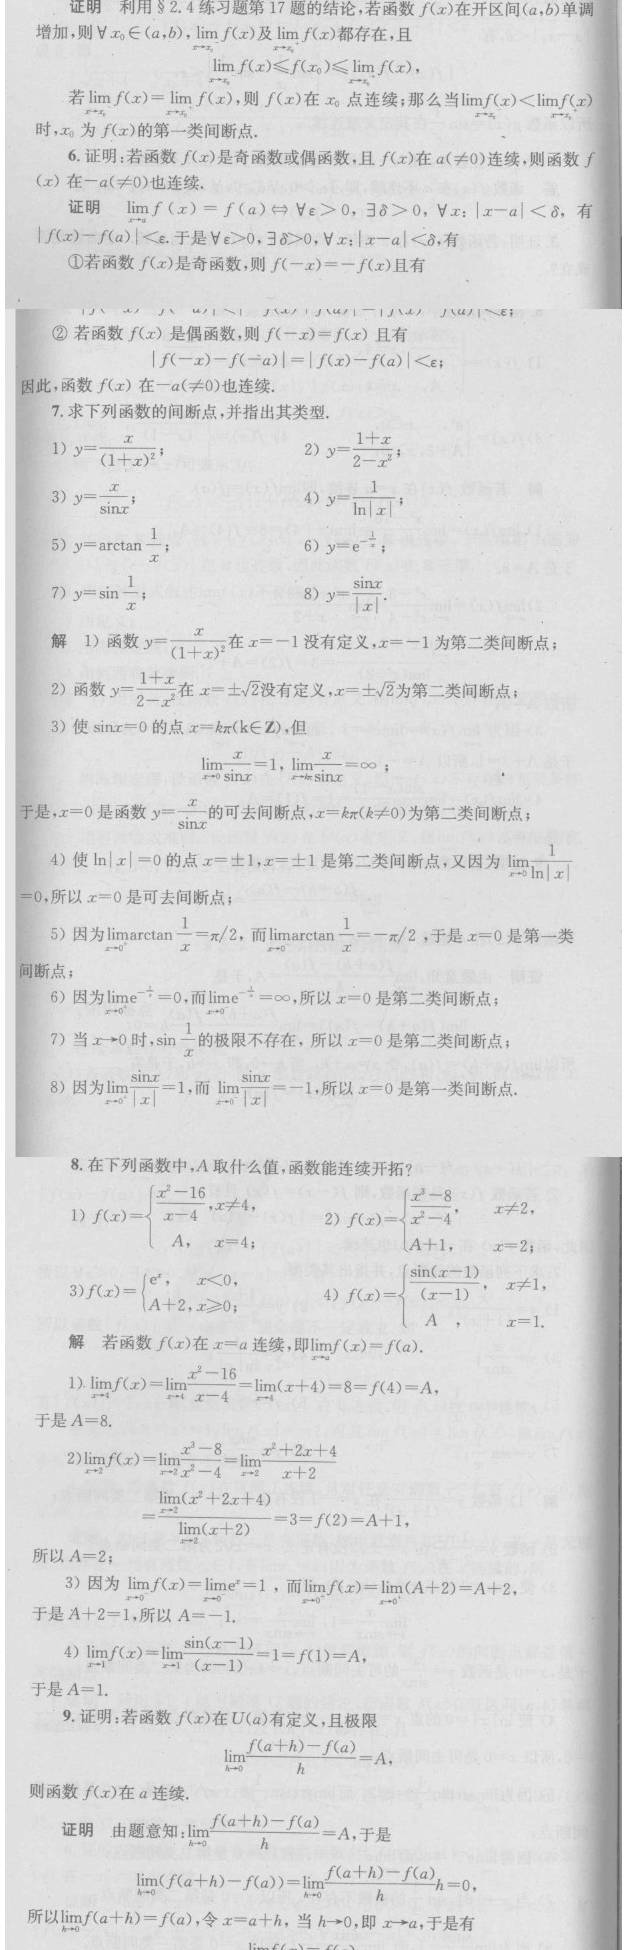 证明 利用§2.4练习题第17题的结论,若函数 f(x)在开区间(a,b)单调
增加,则∀x₀∈(a,b), lim_{x→x₀⁻} f(x)及 lim_{x→x₀⁺} f(x)都存在,且
lim_{x→x₀⁻} f(x)≤f(x₀)≤lim_{x→x₀⁺} f(x),
若 lim_{x→x₀⁻} f(x)= lim_{x→x₀⁺} f(x),则 f(x)在 x₀ 点连续;那么当 lim_{x→x₀⁻} f(x)<lim_{x→x₀⁺} f(x)
时,x₀ 为 f(x)的第一类间断点.
6.证明:若函数 f(x)是奇函数或偶函数,且 f(x)在 a(≠0)连续,则函数 f
(x) 在-a(≠0)也连续.
证明 lim_{x→a} f(x) = f(a)⇔∀ε>0,∃δ>0,∀x:|x-a|<δ,有
|f(x)-f(a)|<ε.于是∀ε>0,∃δ>0,∀x:|x-a|<δ,有
①若函数 f(x)是奇函数,则 f(-x)=-f(x)且有
② 若函数 f(x) 是偶函数,则 f(-x)=f(x) 且有
|f(-x)-f(-a)|=|f(x)-f(a)|<ε;
因此,函数 f(x) 在-a(≠0)也连续.
7.求下列函数的间断点,并指出其类型.
1) y=x/(1+x)²; 2) y=(1+x)/(2-x²);
3) y=x/sinx; 4) y=1/ln|x|;
5) y=arctan 1/x; 6) y=e^{-1/x};
7) y=sin 1/x; 8) y=sinx/|x|.
解 1) 函数 y=x/(1+x)²在 x=-1 没有定义,x=-1 为第二类间断点;
2) 函数 y=(1+x)/(2-x²)在 x=±√2没有定义,x=±√2为第二类间断点;
3) 使 sinx=0 的点 x=kπ(k∈Z),但
lim_{x→0} x/sinx=1, lim_{x→kπ} x/sinx=∞;
于是,x=0 是函数 y=x/sinx 的可去间断点,x=kπ(k≠0)为第二类间断点;
4) 使 ln|x|=0 的点 x=±1,x=±1 是第二类间断点,又因为 lim_{x→0} 1/ln|x|
=0,所以 x=0 是可去间断点;
5) 因为 lim_{x→0⁺} arctan 1/x=π/2, 而 lim_{x→0⁻} arctan 1/x=-π/2 ,于是 x=0 是第一类
间断点;
6) 因为 lim_{x→0⁺} e^{-1/x}=0,而 lim_{x→0⁻} e^{-1/x}=∞,所以 x=0 是第二类间断点;
7) 当 x→0 时,sin 1/x 的极限不存在, 所以 x=0 是第二类间断点;
8) 因为 lim_{x→0⁺} sinx/|x|=1,而 lim_{x→0⁻} sinx/|x|=-1,所以 x=0 是第一类间断点.
8.在下列函数中,A 取什么值,函数能连续开拓?
1) f(x)={(x²-16)/(x-4),x≠4, A, x=4; 2) f(x)={(x³-8)/(x²-4), x≠2, A+1, x=2;
3)f(x)={eˣ, x<0, A+2,x≥0; 4) f(x)={sin(x-1)/(x-1), x≠1, A , x=1.
解 若函数 f(x)在 x=a 连续,即 lim_{x→a} f(x)=f(a).
1) lim_{x→4} f(x)=lim_{x→4} (x²-16)/(x-4)=lim_{x→4}(x+4)=8=f(4)=A,
于是 A=8.
2)lim_{x→2} f(x)=lim_{x→2} (x³-8)/(x²-4)=lim_{x→2} (x²+2x+4)/(x+2)
=lim_{x→2}(x²+2x+4)/lim_{x→2}(x+2)=3=f(2)=A+1,
所以 A=2;
3) 因为 lim_{x→0⁻} f(x)=lim_{x→0⁻} eˣ=1 , 而 lim_{x→0⁺} f(x)=lim_{x→0⁺}(A+2)=A+2,
于是 A+2=1,所以 A=-1.
4) lim_{x→1} f(x)=lim_{x→1} sin(x-1)/(x-1)=1=f(1)=A,
于是 A=1.
9.证明:若函数 f(x)在 U(a)有定义,且极限
lim_{h→0} (f(a+h)-f(a))/h=A,
则函数 f(x)在 a 连续.
证明 由题意知:lim_{h→0} (f(a+h)-f(a))/h=A,于是
lim_{h→0}(f(a+h)-f(a))=lim_{h→0} (f(a+h)-f(a))/h h=0,
所以 lim_{h→0} f(a+h)=f(a),令 x=a+h, 当 h→0,即 x→a,于是有